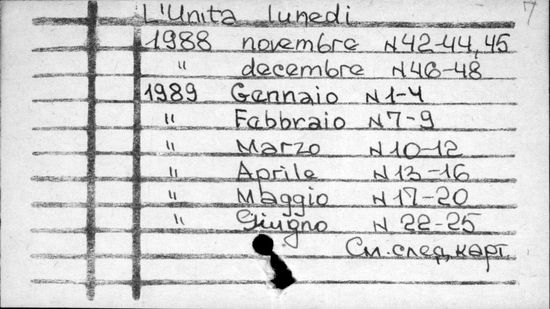 7
L'Unita lunedi
1988 novembre N42-44,45
" decembre N46-48
1989 Gennaio N1-4
" Fabbraio N7-9
" Marzo N10-12
" Aprile N13-16
" Maggio N17-20
" Giugno N22-25
См. след. карт.